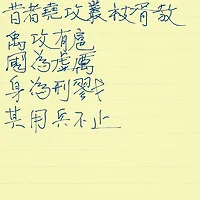 昔者堯攻叢枝胥敖
禹攻有扈
國為虛厲
身為刑戮
其用兵不止